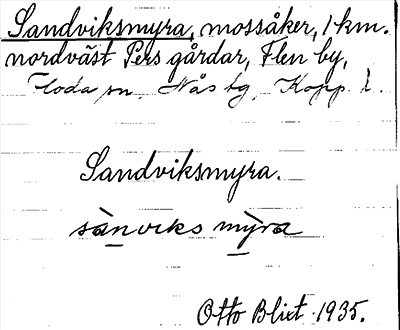 Sandviksmyra, mossåker, 1 km.
nordväst Pers gårdar, Flen by,
Floda sn. Nås tg, Kopp. l.
Sandviksmyra.
sànviks mỳra
Otto Blixt 1935.